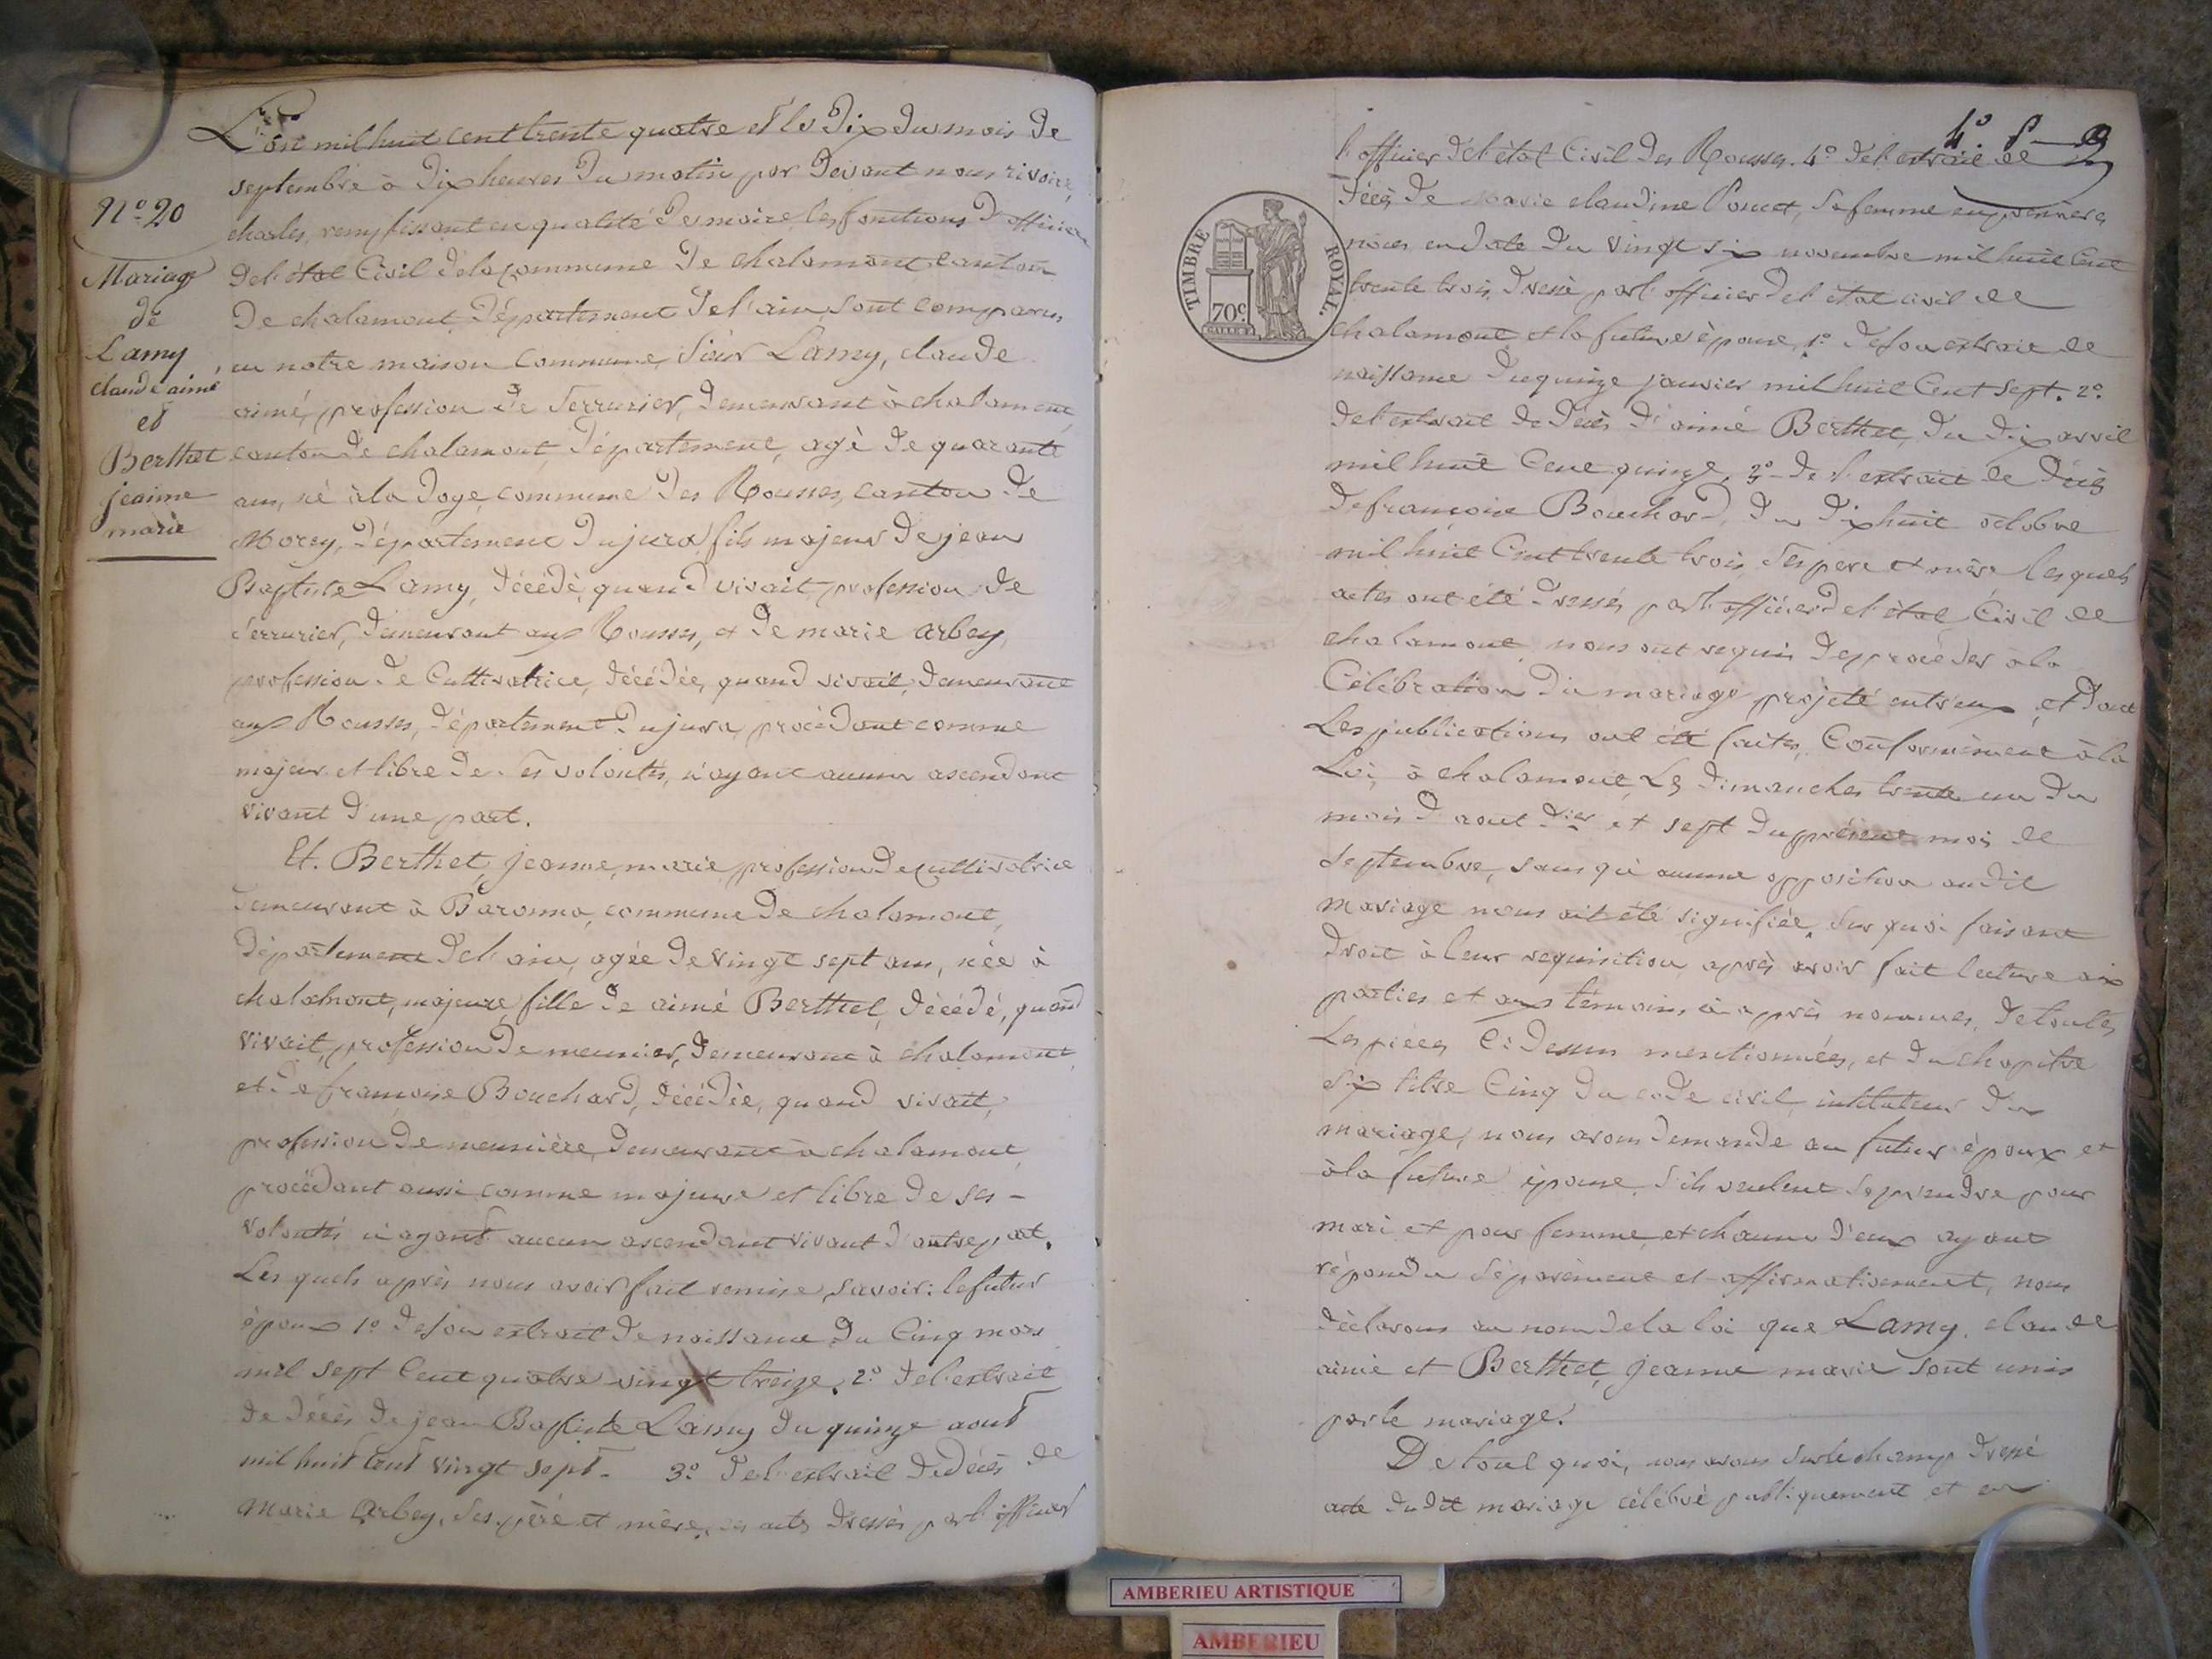 L'an mil huit cent trente quatre et le dix du mois de
septembre à dix heures du matin par devant nous rivoire,
charles, remplissant en qualité de maire les fonctions d'officier
de l'état Civil de la commune de chalamont canton
De chalamont, Département de l'ain, sont comparus
en notre maison Commune, Sieur Lamy, claude
aimé, profession de Serrurier, demeurant à chalamont,
canton de chalamont, département, agé de quarante
ans, né à la Doye, commune des Rousses, canton de
Morey, Département du jura, fils majeur de jean
Baptiste Lamy, décédé, quand vivait, profession de
Serrurier, demeurant aux Rousses, et de marie arbey,
profession de Cultivatrice, décédée, quand vivait, demeurant
aux Rousses, département du jura, procédant comme
majeur et libre de ses volontés, n'ayant aucun ascendant
vivant d'une part.
Et. Berthet, jeanne, marie, profession de cultivatrice
demeurant à Baronna, commune de chalamont,
Département de l'ain, agée de vingt sept ans, née à
chalamont, majeure, fille de aimé Berthet, décédé, quand
vivait, profession de meunier, demeurant à chalamont,
et de françoise Bouchard, décédée, quand vivait,
profession de meunière, demeurant à chalamont,
procédant aussi comme majeure et libre de ses -
volontés n'ayant aucun ascendant vivant d'autre part.
Lesquels après nous avoir fait remise, savoir: le futur
époux 1º de son extrait de naissance du Cinq mars
mil sept Cent quatre vingt treize. 2º de l'extrait
de décès de jean Baptiste Lamy du quinze aout
mil huit Cent vingt sept - 3º de l'extrait de décès de
Marie Arbey, ses père et mère, ces actes dressés par l'officier
Nº 20
Mariage
de
Lamy,
claude aimé
et
Berthet
jeanne
marie
4º.
l'officier de l'état Civil des Rousses. 4º de l'extrait de
décès de marie claudine Poncet, sa femme en premières
nôces en date du vingt six novembre mil huit Cent
trente trois, dressé par l'officier de l'état civil de
chalamont, et la future épouse, 1º de son extrait de
naissance du quinze janvier mil huit Cent sept. 2º
de l'extrait de décès d'aimé Berthet, du dix avril
mil huit Cent quinze, 3º - de l'extrait de décès
de françoise Bouchard, du dix huit octobre
mil huit Cent trente trois, ses pere et mère lesquels
actes ont été dressés par l'officier de l'état Civil de
chalamont, nous ont requis de procéder à la
Célébration du mariage projeté entr'eux, et dont
Les publications ont été faites, Conformément à la
Loi, à chalamont, Les dimanches trente un du
mois d'aout der et sept du présent mois de
septembre, sans qu'aucune opposition audit
mariage nous ait été signifiée, sur quoi faisant
droit à leur requisition, après avoir fait lecture aux
parties et aux témoins ci après nommés, de toutes
Les pièces Ci dessus mentionnées, et du chapitre
six titre Cinq du code civil, intitulé du
mariage, nous avons demandé au futur époux et
à la future épouse, s'ils veulent se prendre pour
mari et pour femme, et chacun d'eux ayant
répondu séparément et affirmativement, nous
déclarons au nom de la loi que Lamy, claude
aimé et Berthet, jeanne marie sont unis
par le mariage.
De tout quoi, nous avons sur le champ dressé
acte dudit mariage célébré publiquement et en
TIMBRE ROYAL.
70c
AMBERIEU ARTISTIQUE
AMBERIEU